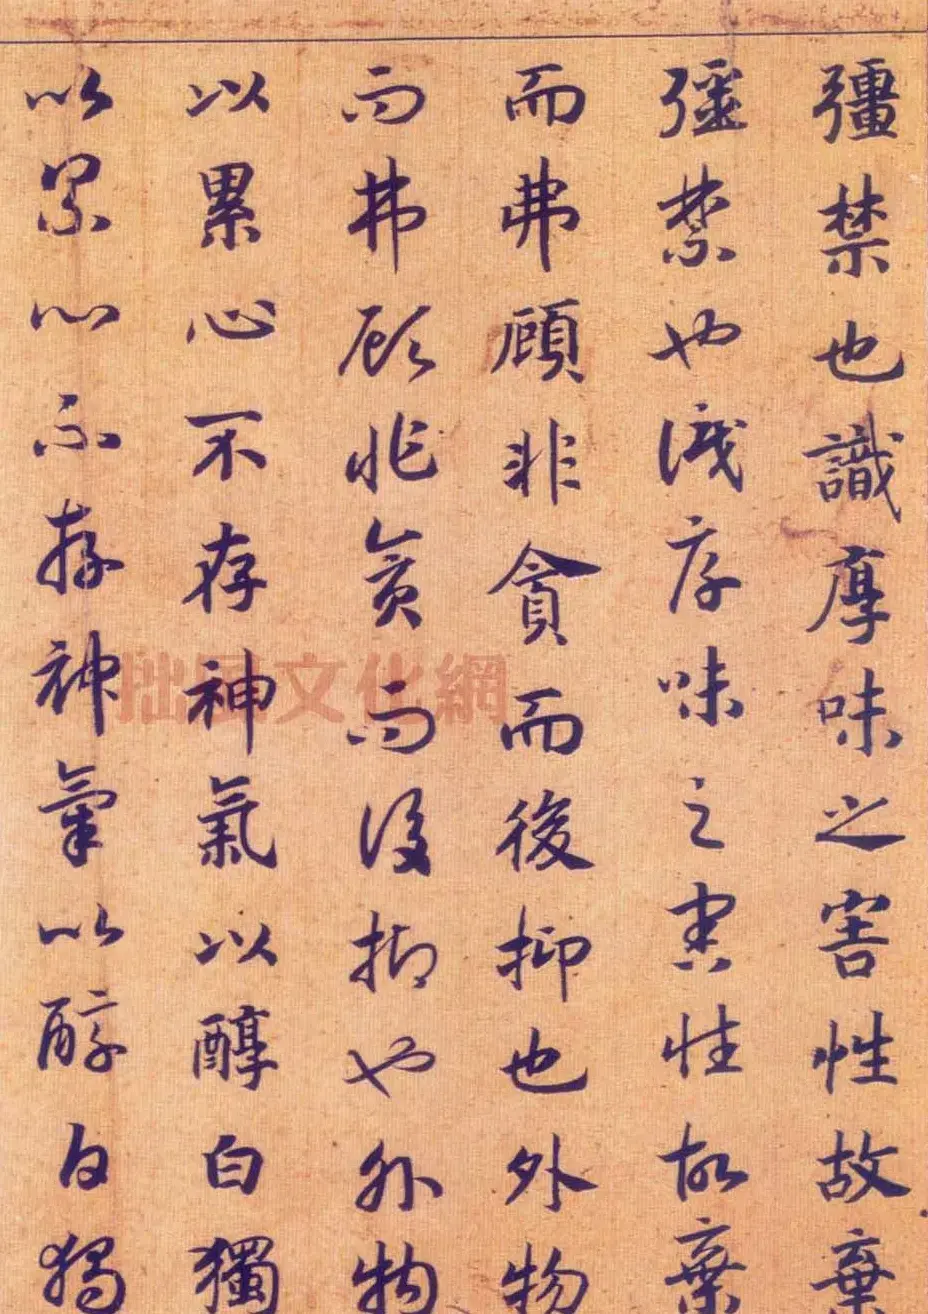 彊禁也識厚味之害性故棄
彊禁也识厚味之害性故棄
而弗顧非貪而後抑也外物
而弗顾非贪而後抑也外物
以累心不存神氣以醇白獨
以累心不存神氣以醇白獨
拙風文化網